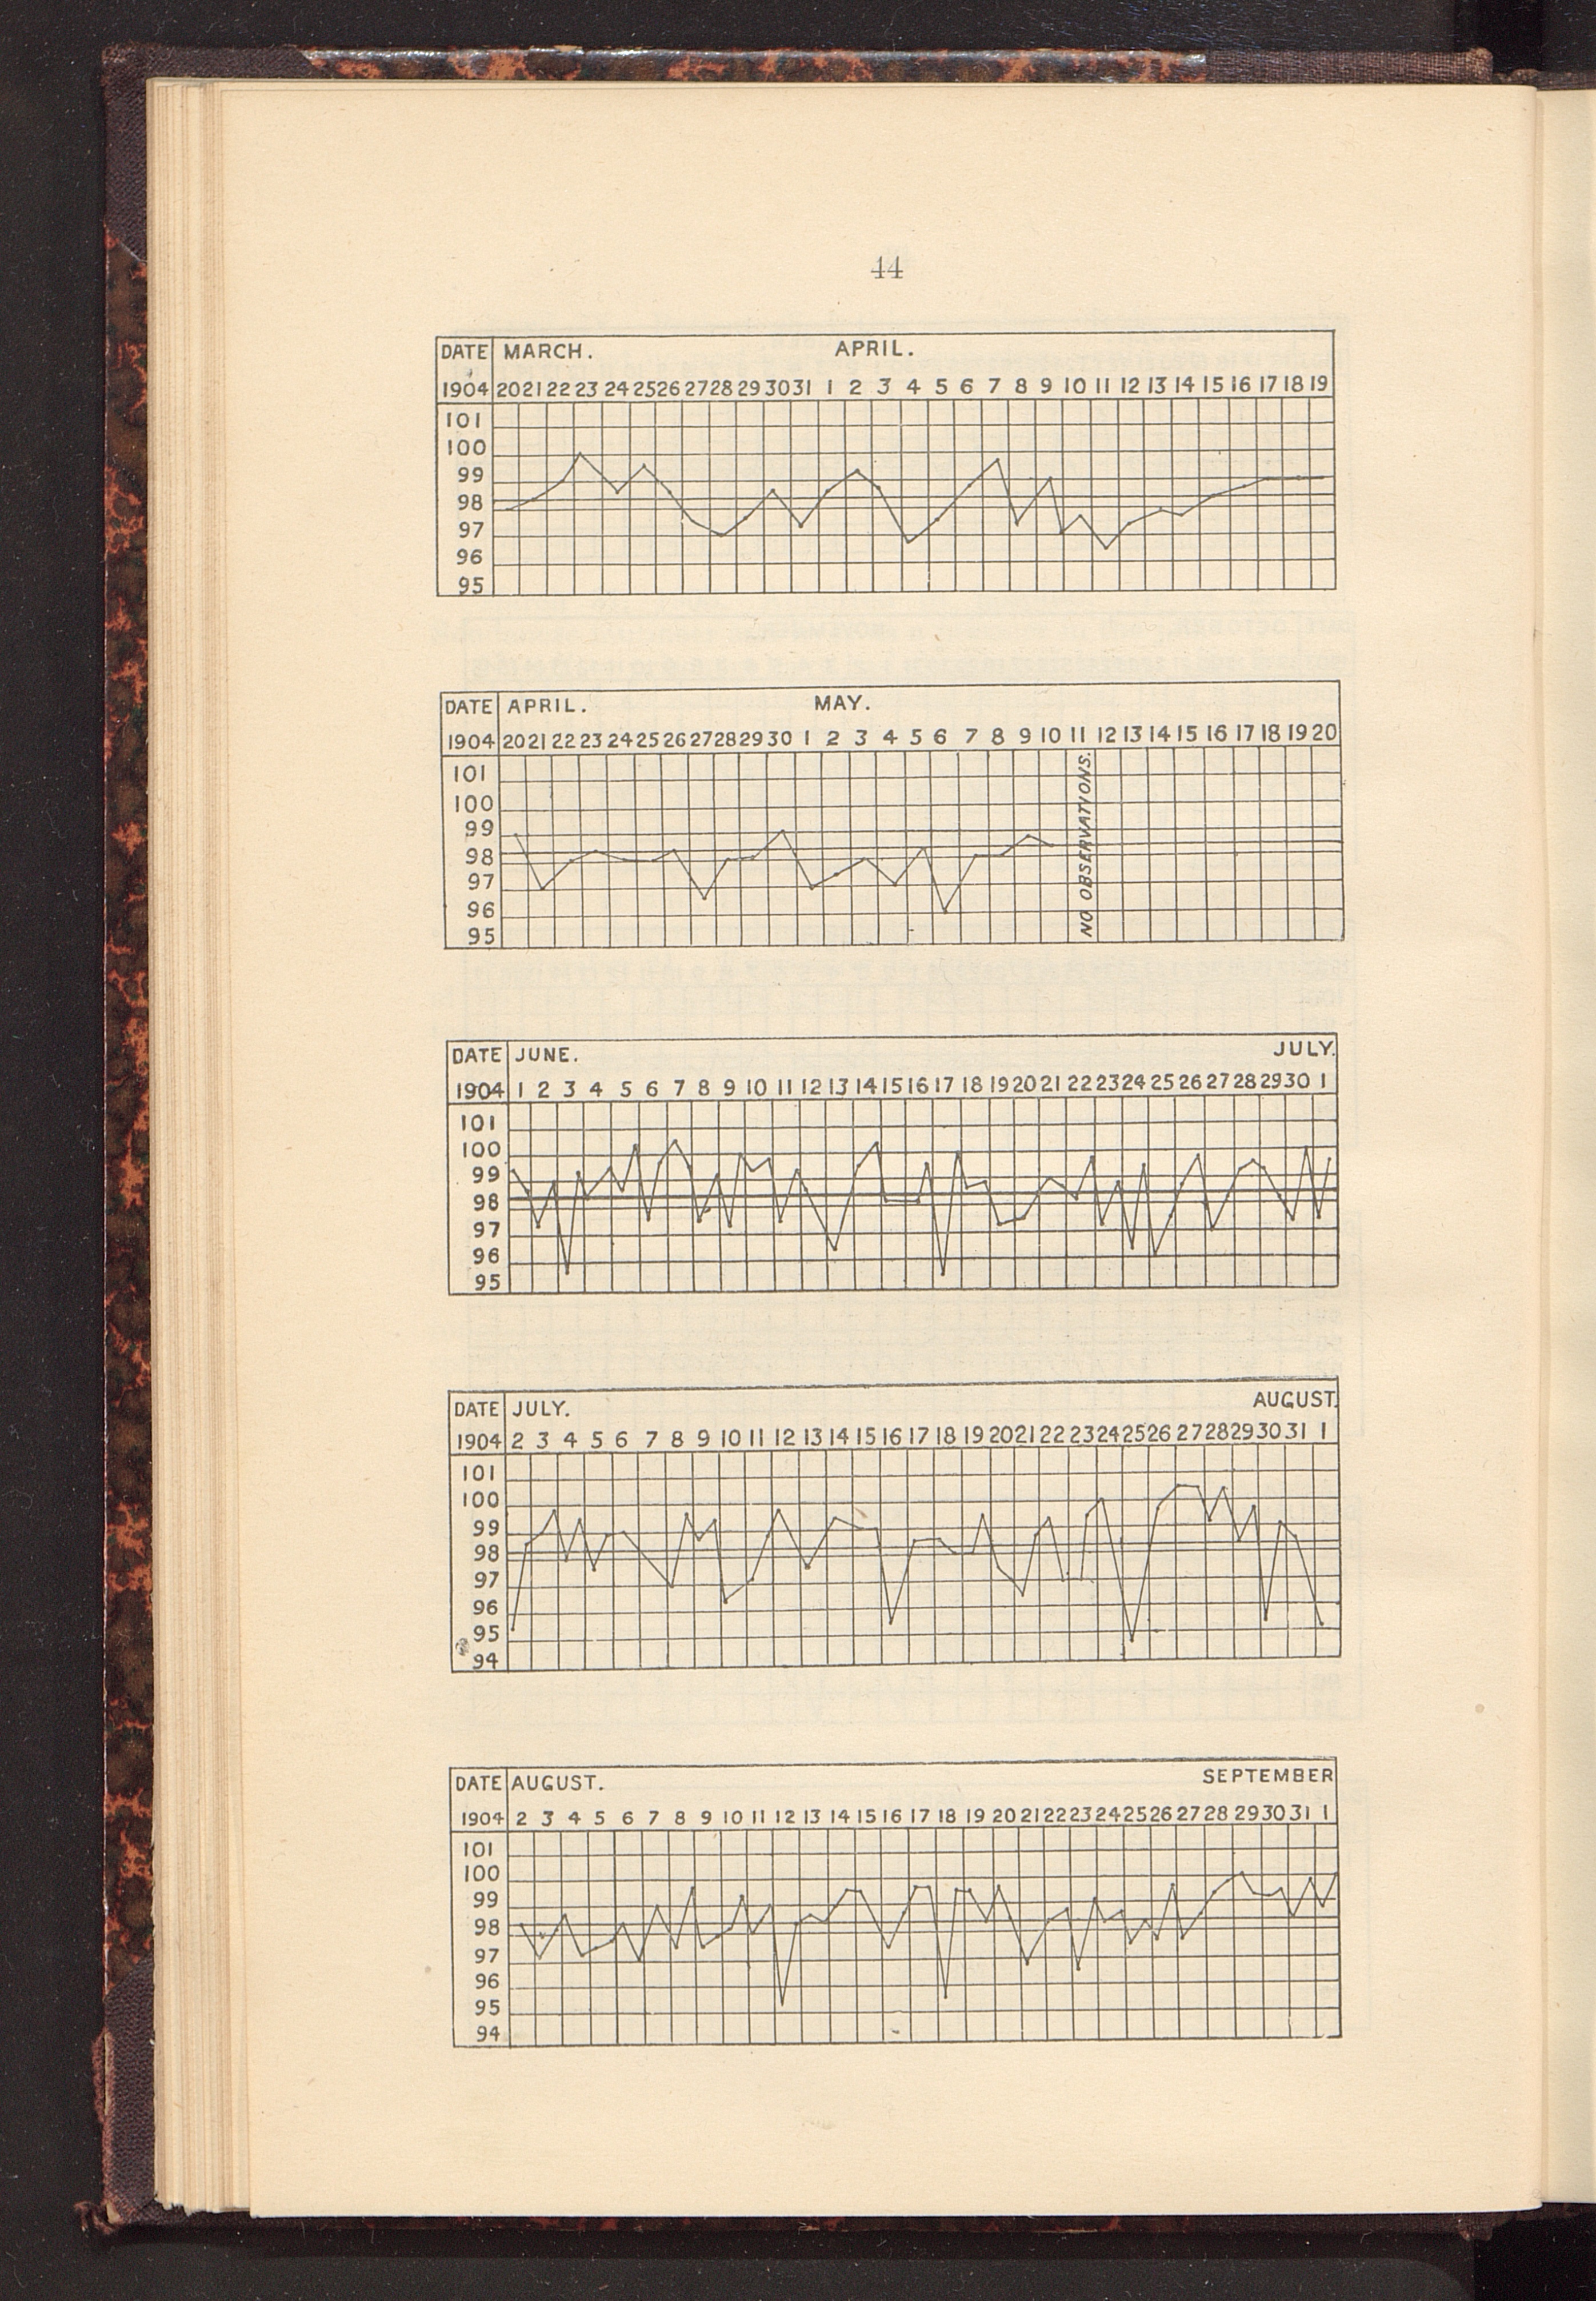 44
DATE MARCH. APRIL.
1904 20 21 22 23 24 25 26 27 28 29 30 31 1 2 3 4 5 6 7 8 9 10 11 12 13 14 15 16 17 18 19
101
100
99
98
97
96
95
DATE APRIL. MAY.
1904 20 21 22 23 24 25 26 27 28 29 30 1 2 3 4 5 6 7 8 9 10 11 12 13 14 15 16 17 18 19 20
101
100
99
98
97
96
95
NO OBSERVATIONS.
DATE JUNE. JULY.
1904 1 2 3 4 5 6 7 8 9 10 11 12 13 14 15 16 17 18 19 20 21 22 23 24 25 26 27 28 29 30 1
101
100
99
98
97
96
95
DATE JULY. AUGUST.
1904 2 3 4 5 6 7 8 9 10 11 12 13 14 15 16 17 18 19 20 21 22 23 24 25 26 27 28 29 30 31 1
101
100
99
98
97
96
95
94
DATE AUGUST. SEPTEMBER
1904 2 3 4 5 6 7 8 9 10 11 12 13 14 15 16 17 18 19 20 21 22 23 24 25 26 27 28 29 30 31 1
101
100
99
98
97
96
95
94